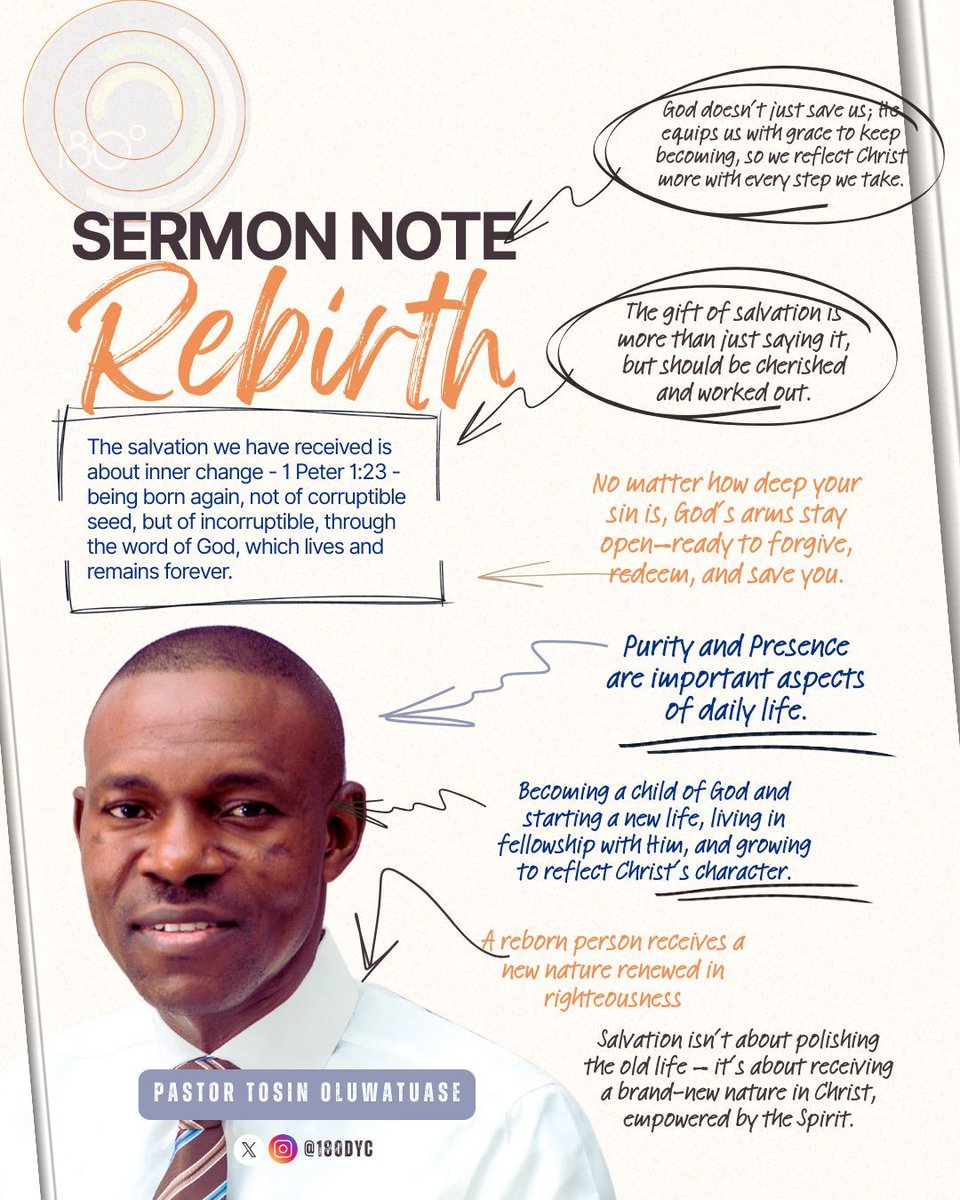 180°
God doesn't just save us; He
equips us with grace to keep
becoming, so we reflect Christ
more with every step we take.
SERMON NOTE
Rebirth
The gift of salvation is
more than just saying it,
but should be cherished
and worked out.
The salvation we have received is
about inner change - 1 Peter 1:23 -
being born again, not of corruptible
seed, but of incorruptible, through
the word of God, which lives and
remains forever.
No matter how deep your
sin is, God's arms stay
open—ready to forgive,
redeem, and save you.
Purity and Presence
are important aspects
of daily life.
Becoming a child of God and
starting a new life, living in
fellowship with Him, and growing
to reflect Christ's character.
A reborn person receives a
new nature renewed in
righteousness
Salvation isn't about polishing
the old life – it's about receiving
a brand-new nature in Christ,
empowered by the Spirit.
PASTOR TOSIN OLUWATUASE
@180DYC